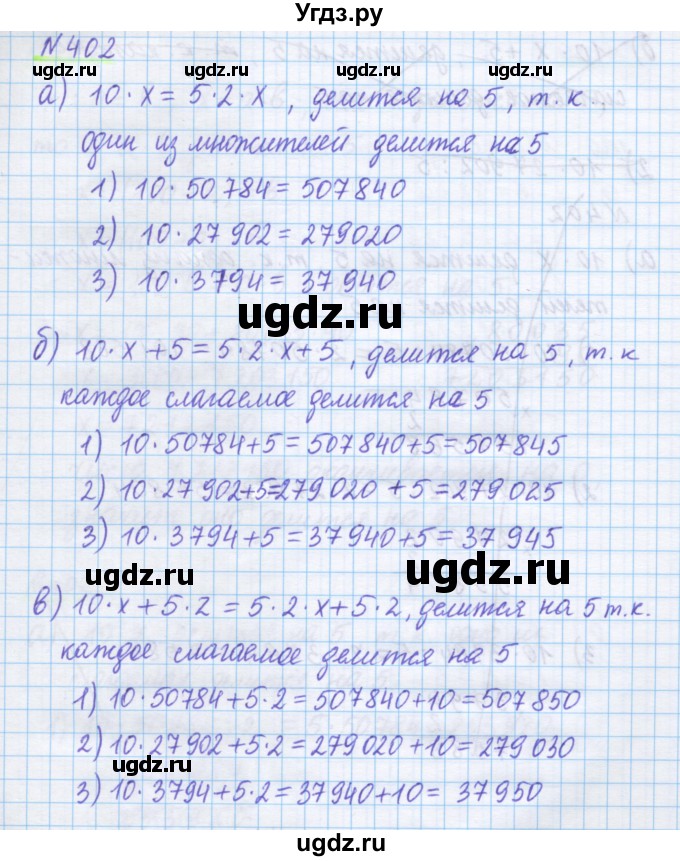 Угдз.ру
N402
ugdz.ru ugdz.ru ugdz.ru
а) 10·x = 5·2·x , делится на 5, т.к.
один из множителей делится на 5
1) 10·50784 = 507840
2) 10·27902 = 279020
ugdz.ru ugdz.ru
3) 10·3794 = 37940
ugdz.ru
б) 10·x + 5 = 5·2·x + 5 , делится на 5, т.к
каждое слагаемое делится на 5
1) 10·50784 + 5 = 507840 + 5 = 507845
ugdz.ru ugdz.ru ugdz.ru
2) 10·27902 + 5 = 279020 + 5 = 279025
3) 10·3794 + 5 = 37940 + 5 = 37945
ugdz.ru ugdz.ru
в) 10·x + 5·2 = 5·2·x + 5·2, делится на 5 т.к.
каждое слагаемое делится на 5
ugdz.ru ugdz.ru
1) 10·50784 + 5·2 = 507840 + 10 = 507850
2) 10·27902 + 5·2 = 279020 + 10 = 279030
ugdz.ru
3) 10·3794 + 5·2 = 37940 + 10 = 37950
ugdz.ru